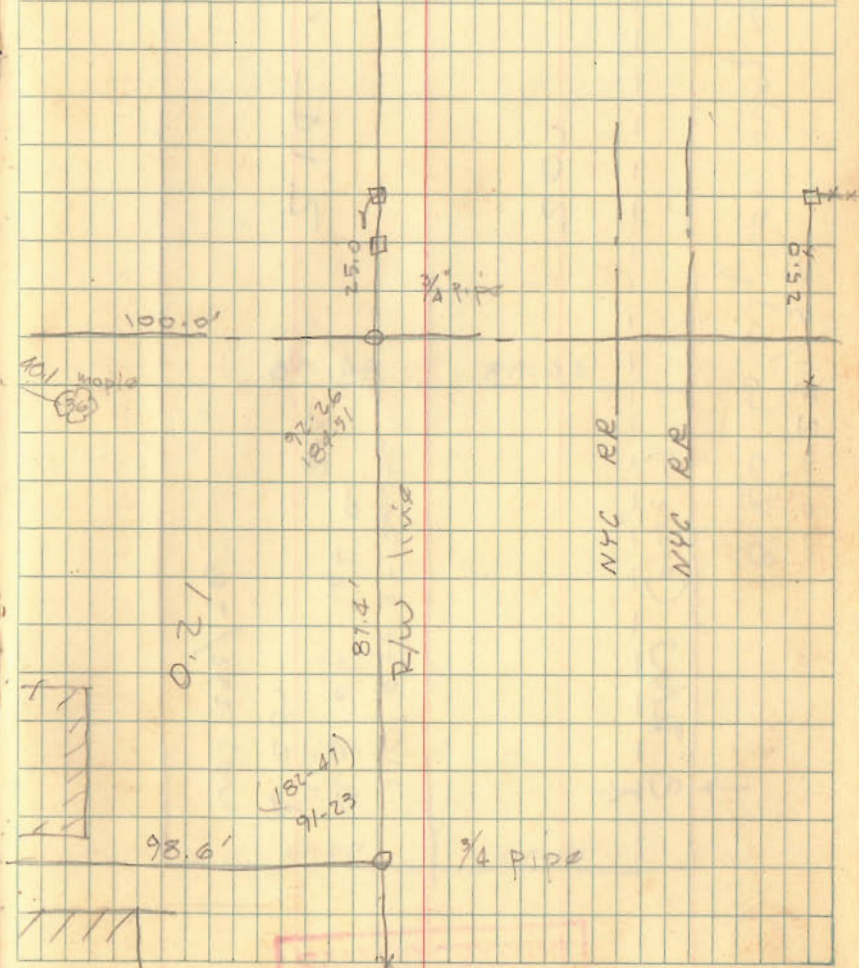 25.0
25.0
3/4" pipe
100.0'
40.1
36
maple
92-26
184-51
NYC RR
NYC RR
R/W line
87.4'
0.21
(182-47)
91-23
98.6'
3/4 pipe